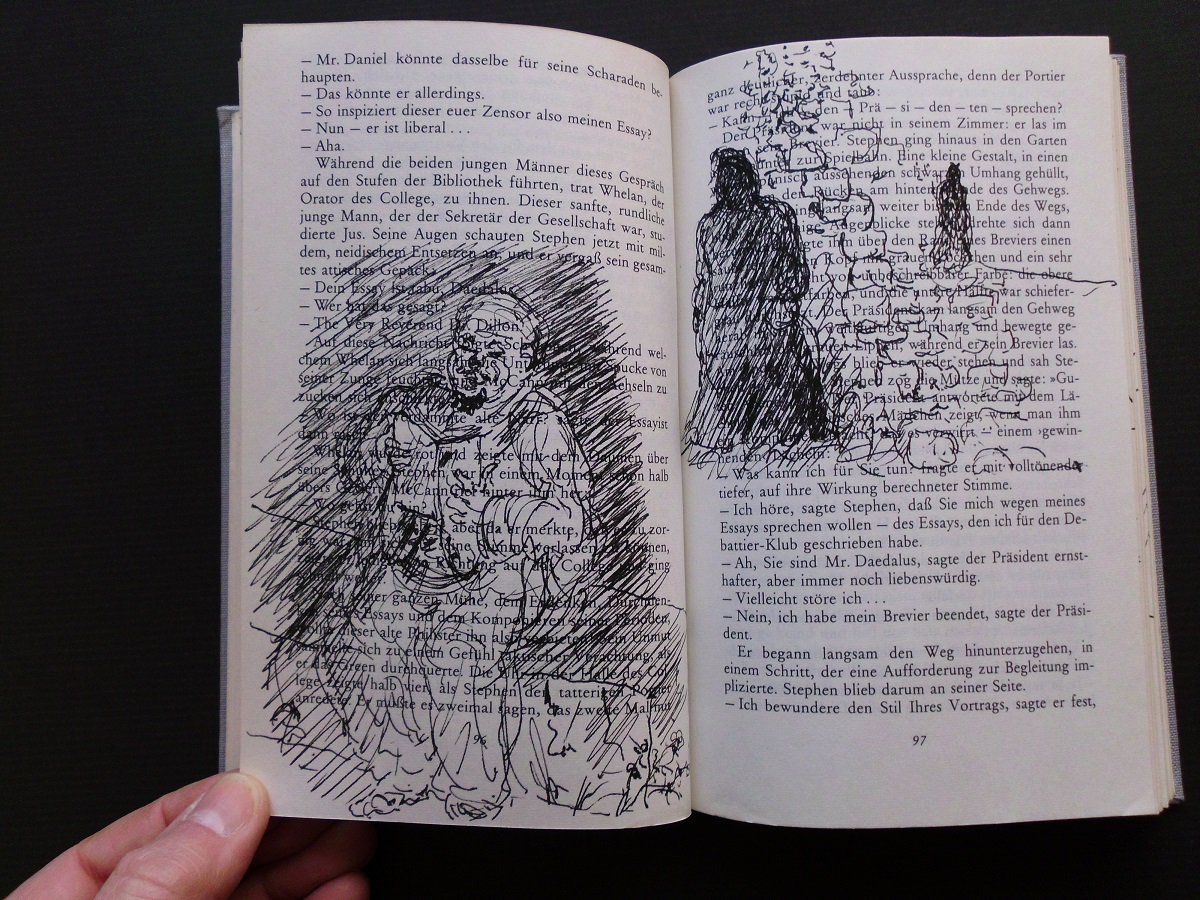 – Mr. Daniel könnte dasselbe für seine Scharaden be-
haupten.
– Das könnte er allerdings.
– So inspiziert dieser euer Zensor also meinen Essay?
– Nun – er ist liberal . . .
– Aha.
Während die beiden jungen Männer dieses Gespräch
auf den Stufen der Bibliothek führten, trat Whelan, der
Orator des College, zu ihnen. Dieser sanfte, rundliche
junge Mann, der der Sekretär der Gesellschaft war, stu-
dierte Jus. Seine Augen schauten Stephen jetzt mit mil-
dem, neidischem Entsetzen an, und er vergaß sein gesam-
tes attisches Gepäck:
– Dein Essay ist tabu, Daedalus.
– Wer hat das gesagt?
– The Very Reverend Dr. Dillon.
Auf diese Nachricht folgte während wel-
chem Whelan sich langsam die Spucke von
seiner Zunge und McCann
zucken sich
– Wo ist der verdammte alte sagte der Essayist
dann
Whelan wurde rot und zeigte mit dem Daumen über
seine Stephen war in einem Moment schon halb
übers McCann rief hinter ihm her:
– Wo gehst du
Stephen aber da er merkte, daß er zu zor-
seine Stimme verlassen zu können,
Richtung auf das College und ging
weiter.
seiner ganzen Mühe, dem
seines Essays und dem Komponieren seiner Perioden,
wollte dieser alte Philister ihn also verbieten! Sein Unmut
sammelte sich zu einem Gefühl Verachtung, als
er das Green durchquerte. Die Uhr in der Halle des Col-
lege zeigte halb vier, als Stephen den tatterigen Portier
anredete. Er mußte es zweimal sagen, das zweite Mal mit
96
ganz deutlicher, zerdehnter Aussprache, denn der Portier
war recht und taub:
– Kann den – Prä – si – den – ten – sprechen?
Der Präsident war nicht in seinem Zimmer: er las im
sein Brevier. Stephen ging hinaus in den Garten
zur Spielbahn. Eine kleine Gestalt, in einen
spanisch aussehenden schwarzen Umhang gehüllt,
den Rücken am hinteren Ende des Gehwegs.
langsam weiter bis zum Ende des Wegs,
Augenblicke stehen, drehte sich dann
ihm über den Rand seines Breviers einen
Kopf mit grauen und ein sehr
von unbeschreibbarer Farbe: die obere
und die untere Hälfte war schiefer-
Der Präsident kam langsam den Gehweg
Umhang und bewegte ge-
Lippen, während er sein Brevier las.
blieb er wieder stehen und sah Ste-
Stephen zog die Mütze und sagte: »Gu-
Der Präsident antwortete mit dem Lä-
Mädchen zeigt, wenn man ihm
das es verwirrt – einem ›gewin-
nenden‹ Lächeln:
– Was kann ich für Sie tun? fragte er mit volltönender
tiefer, auf ihre Wirkung berechneter Stimme.
– Ich höre, sagte Stephen, daß Sie mich wegen meines
Essays sprechen wollen – des Essays, den ich für den De-
battier-Klub geschrieben habe.
– Ah, Sie sind Mr. Daedalus, sagte der Präsident ernst-
hafter, aber immer noch liebenswürdig.
– Vielleicht störe ich . . .
– Nein, ich habe mein Brevier beendet, sagte der Präsi-
dent.
Er begann langsam den Weg hinunterzugehen, in
einem Schritt, der eine Aufforderung zur Begleitung im-
plizierte. Stephen blieb darum an seiner Seite.
– Ich bewundere den Stil Ihres Vortrags, sagte er fest,
97